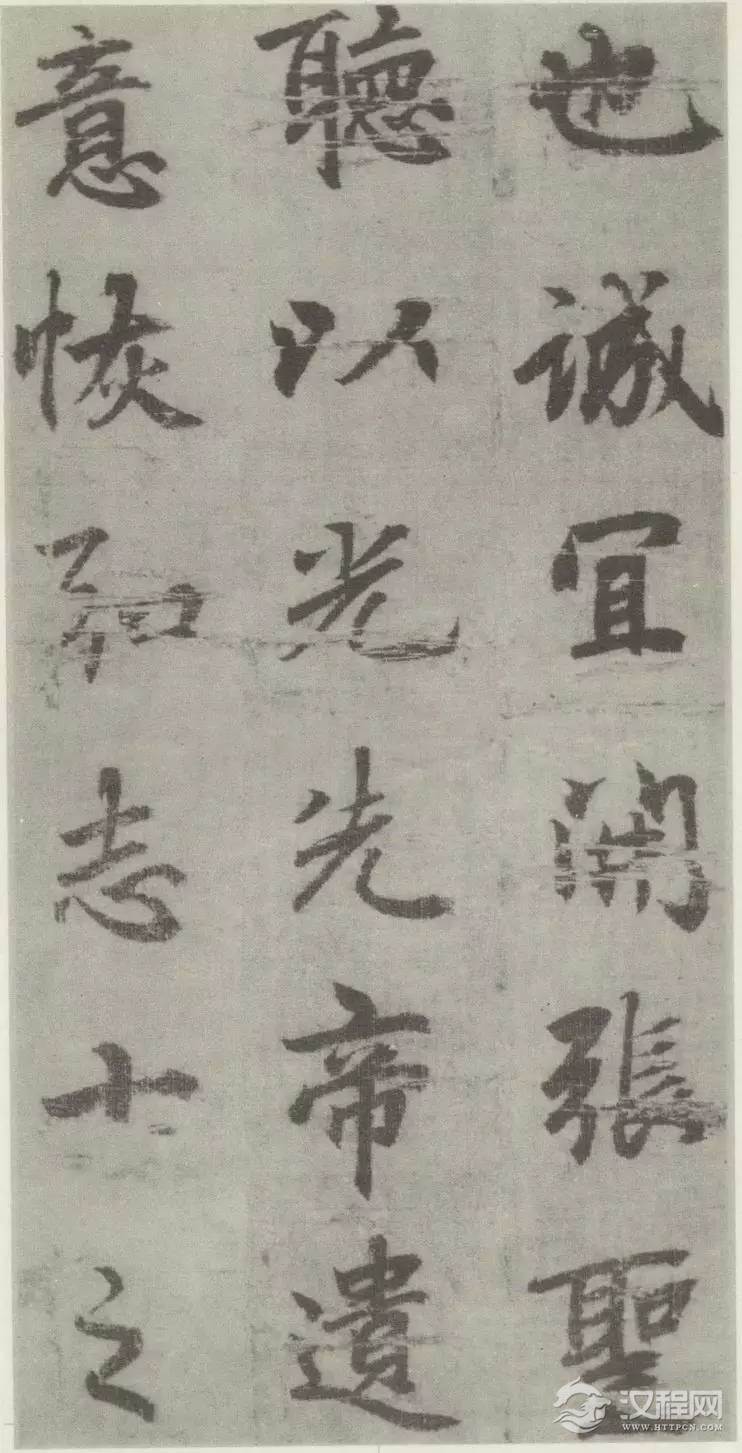 也誠宜開張聖
聽以光先帝遺
意恢弘志士之
汉程网
WWW.HTTPCN.COM